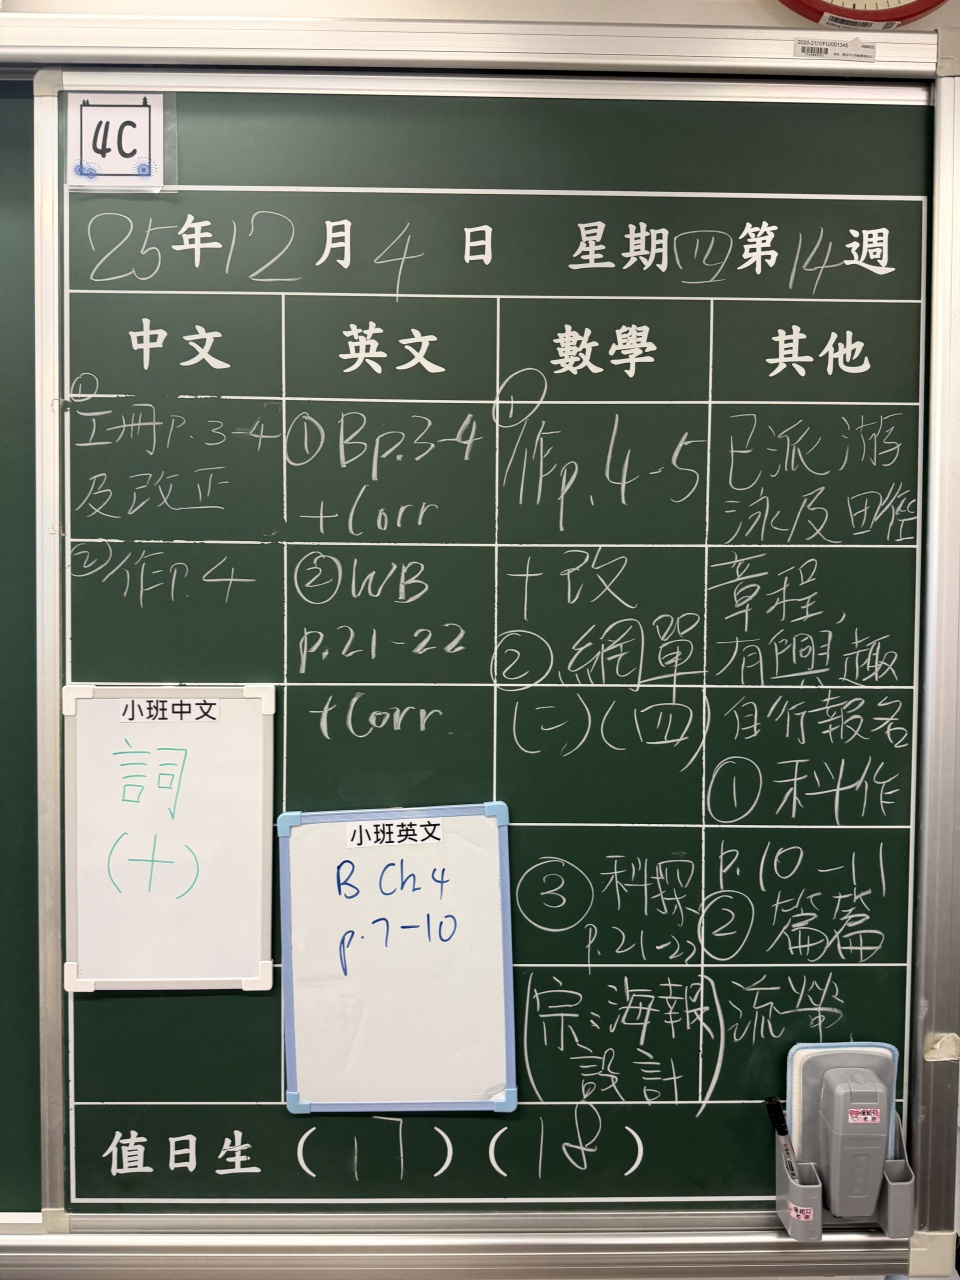 2020-21/1/FU/001345
4C
25年12月4日 星期四第14週
中文
英文
數學
其他
①
工冊P.3-4
及改正
②作P.4
小班中文
詞
(十)
①Bp.3-4
+Corr
②WB
p.21-22
+Corr.
小班英文
B Ch 4
p.7-10
①
作p.4-5
+改
②網單
(二)(四)
③科探
p.21-23
(宗:海報
設計)
已派游
泳及田徑
章程,
有興趣
自行報名
①科作
p.10-11
②篇篇
流螢
值日生(17)(18)